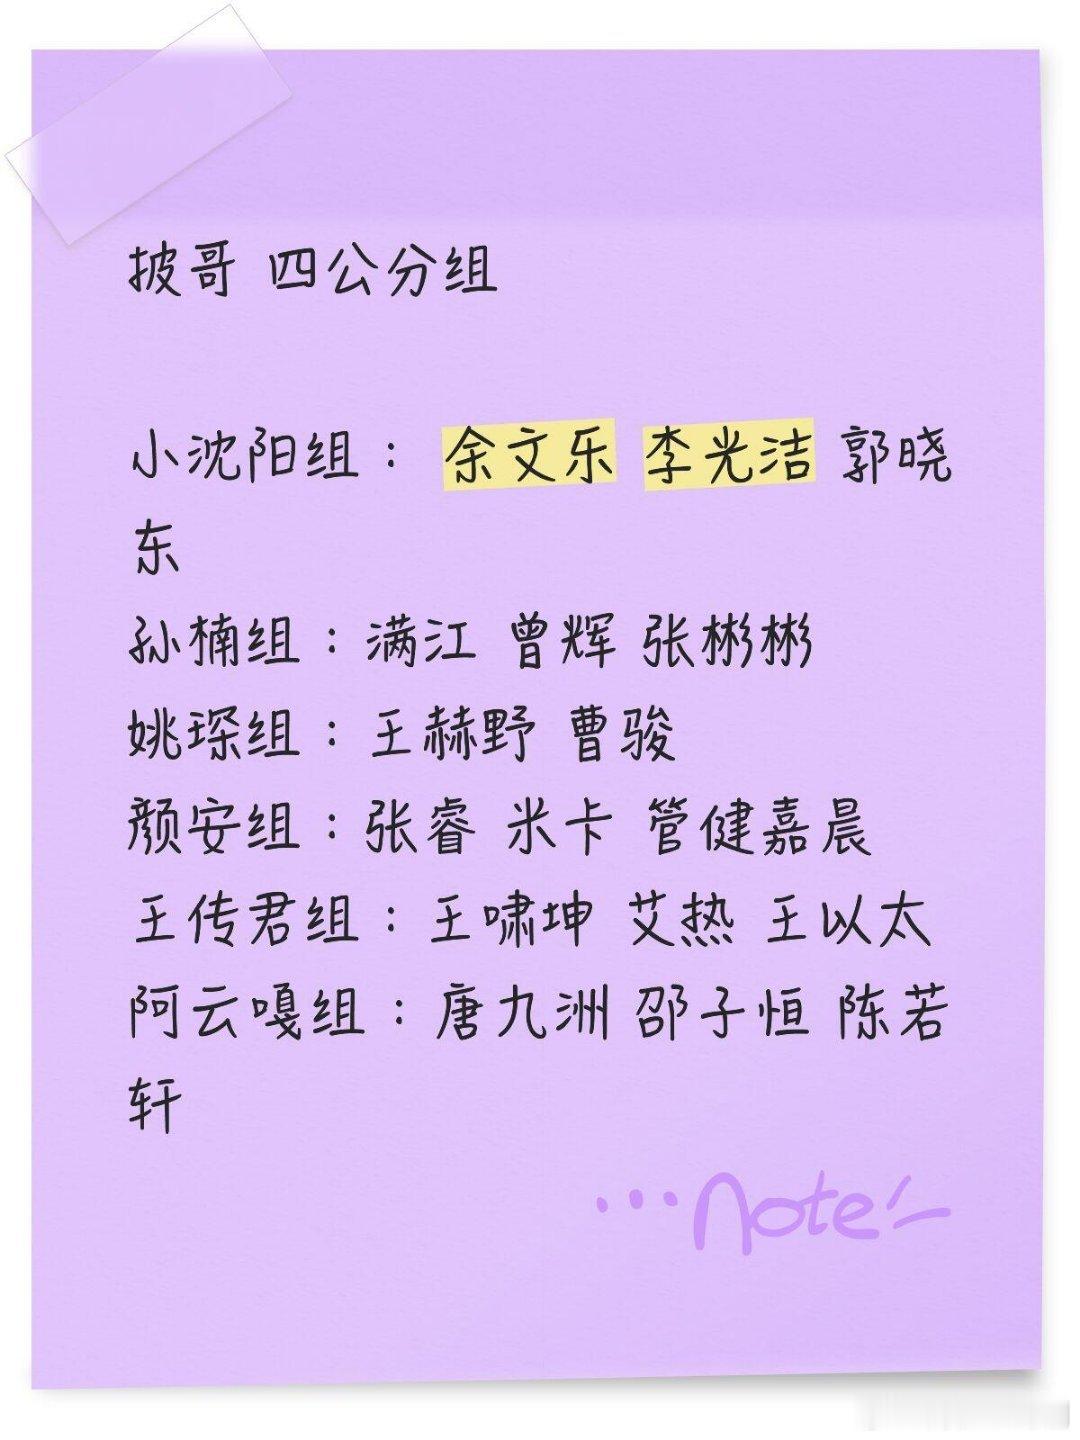 披哥 四公分组
小沈阳组： 余文乐 李光洁 郭晓
东
孙楠组：满江 曾辉 张彬彬
姚琛组：王赫野 曹骏
颜安组：张睿 米卡 管健嘉晨
王传君组：王啸坤 艾热 王以太
阿云嘎组：唐九洲 邵子恒 陈若
轩
...note